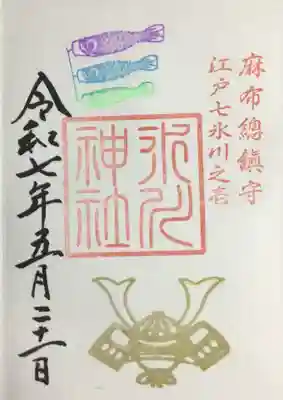 麻布總鎮守
江戸七氷川之壱
氷川神社
令和七年五月二十一日